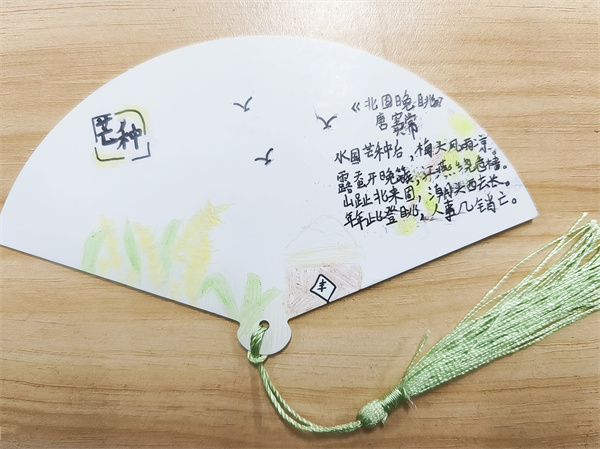 芒种
《北固晚眺》
唐窦常
水国芒种后，梅天风雨凉。
露蚕开晚簇，江燕绕危樯。
山趾北来固，潮头西去长。
年年此登眺，人事几销亡。
丰